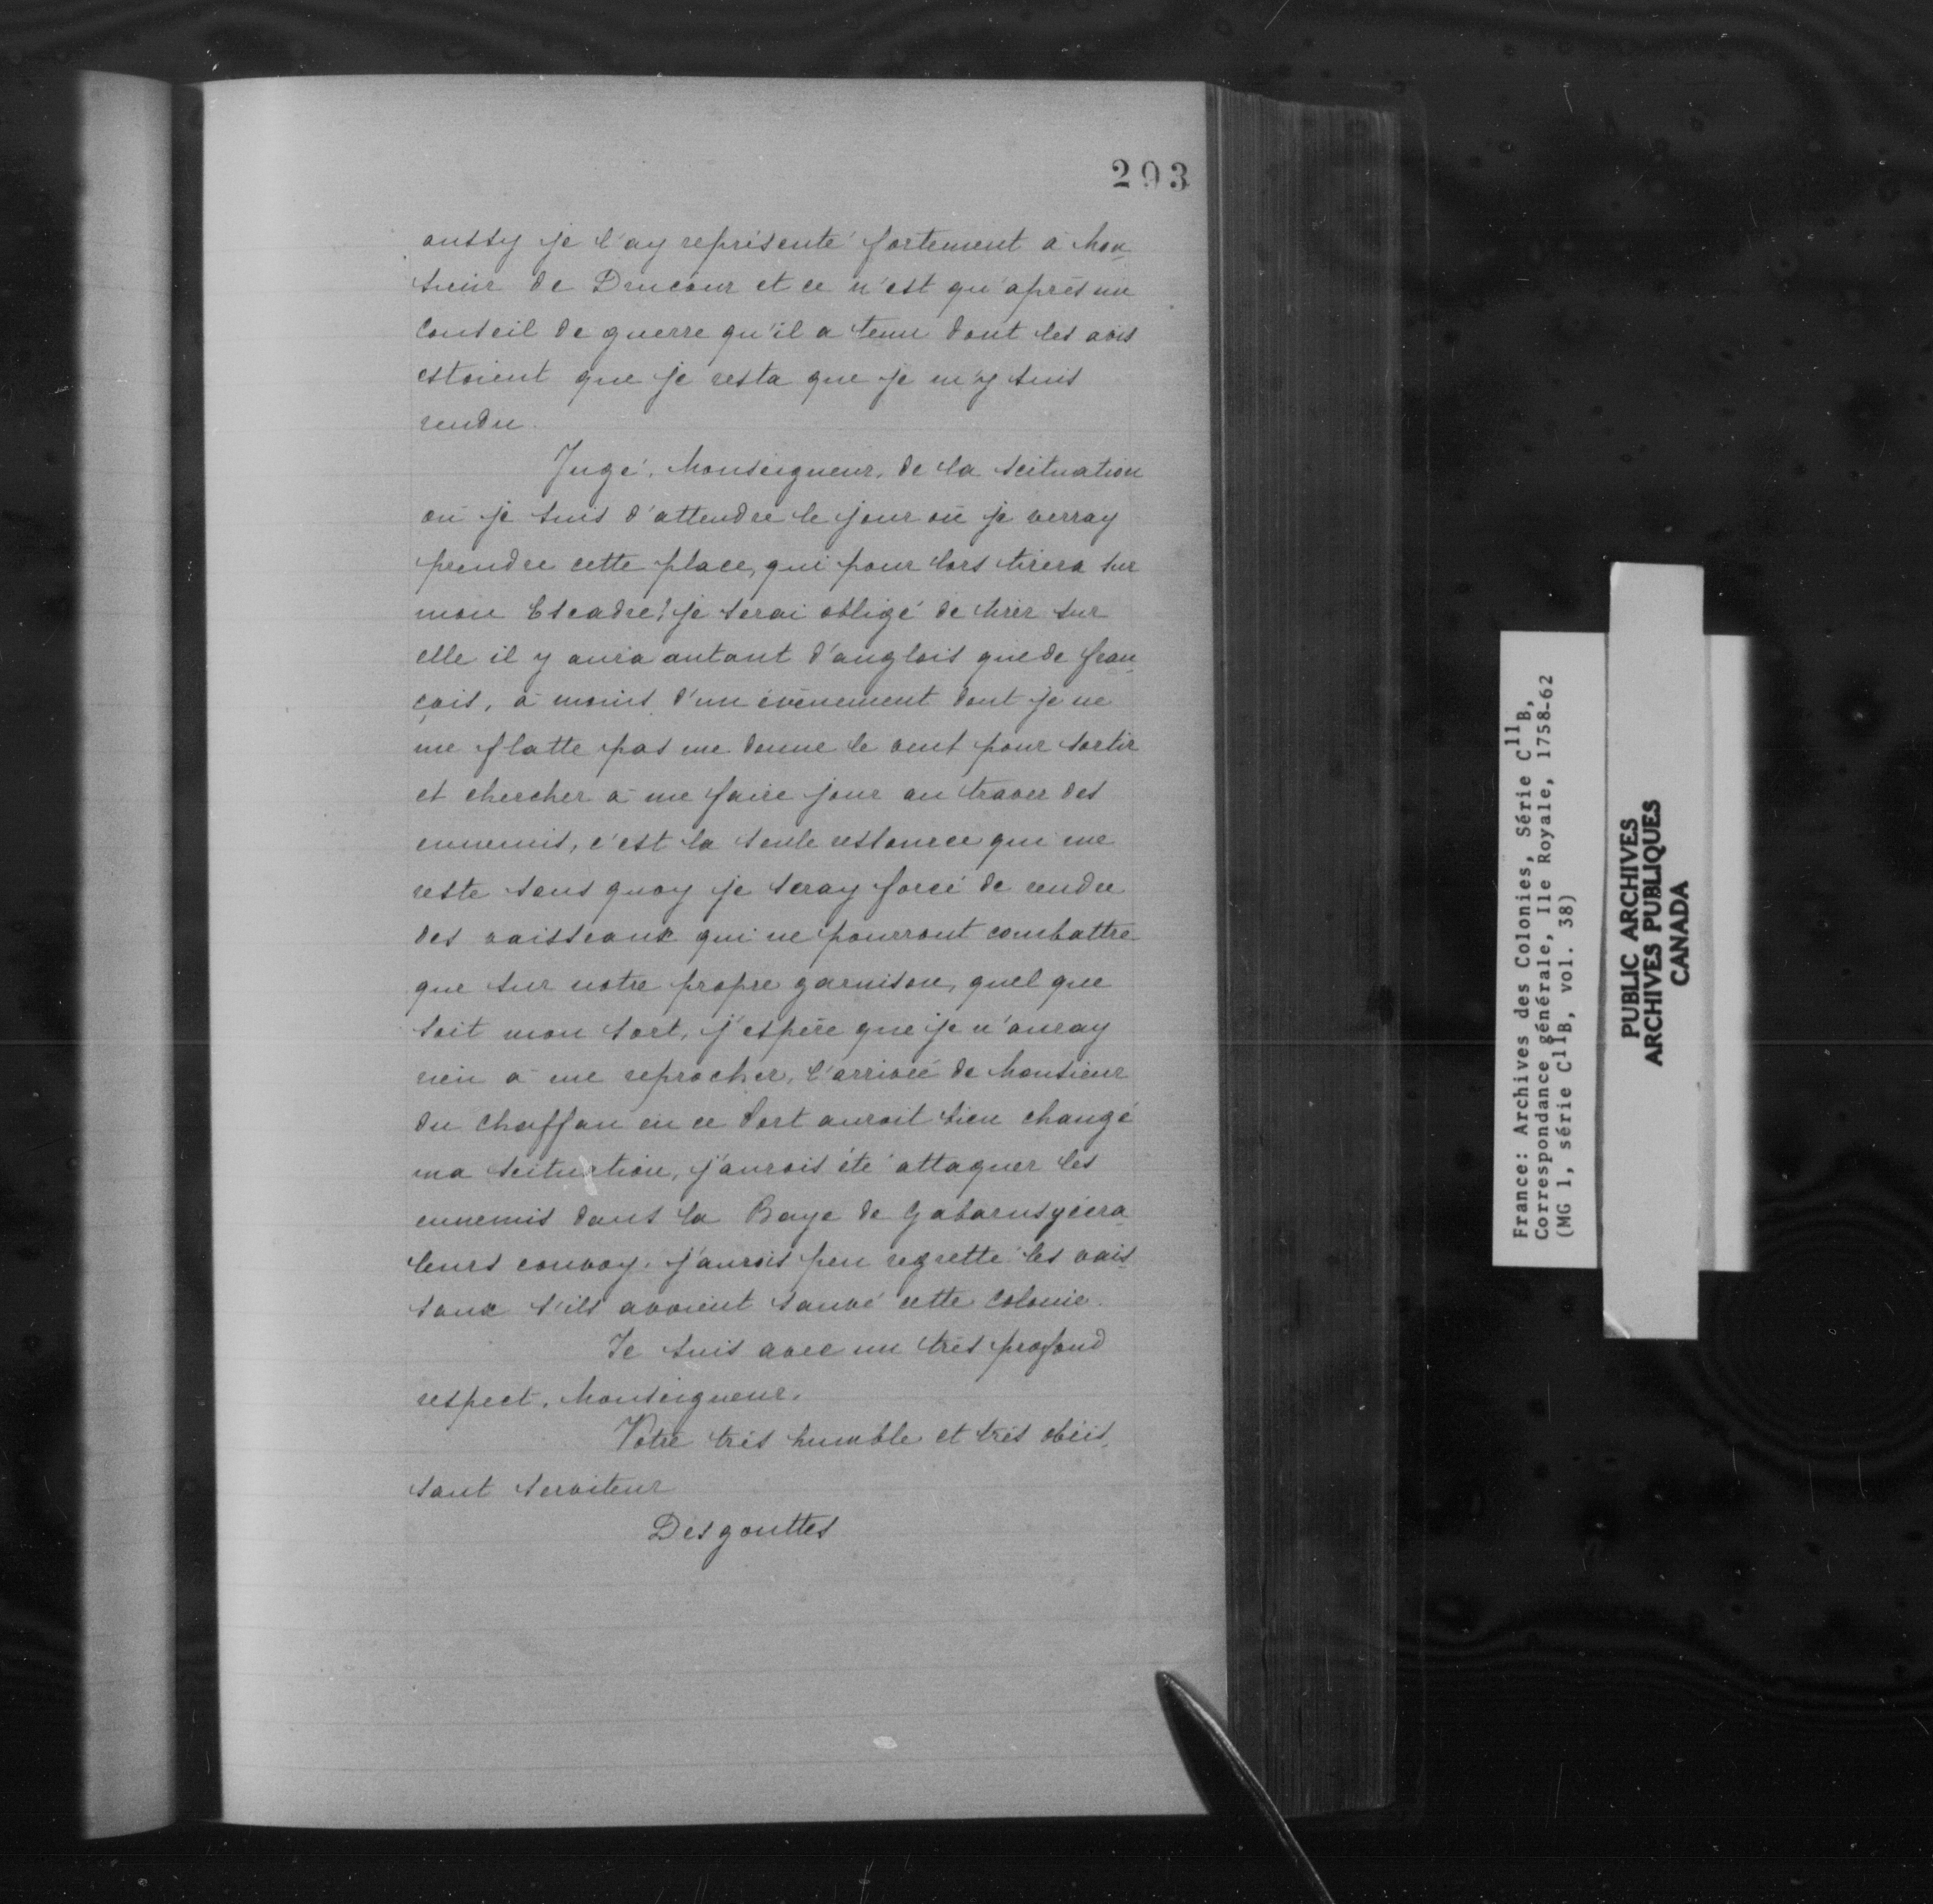 293
aussy je l'ay représenté fortement à Mon-
sieur de Drucour et ce n'est qu'après un
Conseil de guerre qu'il a tenu dont les avis
estoient que je resta que je m'y suis
rendu.
Jugé, Monseigneur, de la scituation
où je suis d'attendre le jour où je verray
prendre cette place, qui pour lors tirera sur
mon Escadre! je serai obligé de tirer sur
elle il y aura autant d'anglois que de fran-
çois, à moins d'un évênement dont je ne
me flatte pas me donne le vent pour sortir
et chercher à me faire jour au traver des
ennemis, c'est la seule ressource qui me
reste sans quoy je seray forcé de rendre
des vaisseaux qui ne pourront combattre
que sur notre propre garnison, quel que
soit mon sort, j'espère que je n'auray
rien à me reprocher, l'arrivée de Monsieur
du Chaffau en ce Port auroit bien changé
ma scituation, j'aurois été attaquer les
ennemis dans la Baye de
leurs convoy. j'aurois peu regretté les vais-
saux s'ils avoient sauvé cette Colonie.
Je suis avec un très profond
respect, Monseigneur,
Votre très humble et très obéis-
sant serviteur
Desgouttes
France: Archives des Colonies, Série C11B,
Correspondance générale, Ile Royale, 1758-62
(MG 1, série C11B, vol. 38)
PUBLIC ARCHIVES
ARCHIVES PUBLIQUES
CANADA